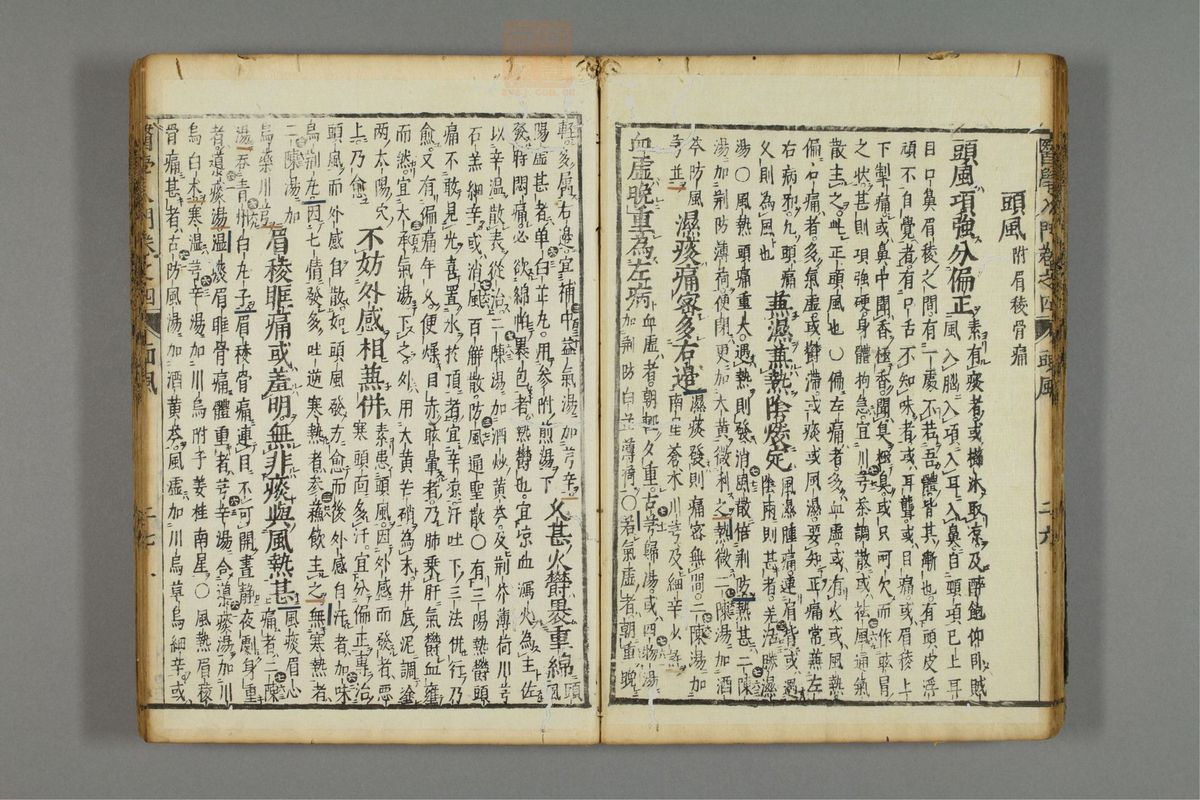 頭風 附眉稜骨痛
頭風項強分偏正 素有痰者或櫛沐取涼及醉飽仰臥賊
風入腦入項入耳入鼻自頭項已上耳
目口鼻眉稜之間有一處不若吾體皆其漸也有頭皮浮
頑不自覺者有口舌不知味者或耳聾或目痛或眉稜上
下掣痛或鼻中聞香極香聞臭極臭或只呵欠而作眩冒
之狀甚則項強硬身體拘急宜川芎茶調散或祛風通氣
散主之此正頭風也○偏左痛者多血虛或有火或風熱
偏右痛者多氣虛或鬱滯或痰或風濕要知正痛常兼左
右病邪凡頭痛
久則為風也 兼濕兼熱陰煖定 風濕腫痛連肩背或遇
陰雨則甚者羌活勝濕
湯○風熱頭痛重大遇熱則發消風散倍荊防熱甚二陳
湯加荊防薄荷便閉更加大黃微利之熱微二陳湯加酒
芩防風
芎芷 濕痰痛密多右邊 濕痰發則痛密無間二陳湯加
南星蒼朮川芎及細辛少許
血虛晚重為左病 血虛者朝輕夕重古芎歸湯或四物湯
加荊防白芷薄荷○若氣虛者朝重晚
輕多屬右邊宜補中益氣湯加芎辛
陽虛甚者单白芷丸用參附煎湯下 久甚火鬱裹重綿 頭風
發時悶痛必欲綿帕裹包者熱鬱也宜凉血瀉火為主佐
以辛温散表從治二陳湯加酒炒黃芩及荊芥薄荷川芎
石羔細辛或消風百解散防風通聖散○有三陽熱鬱頭
痛不敢見光喜置氷於頂者宜辛凉汗吐下三法併行乃
愈又有偏痛年久便燥目赤眩暈者乃肺乗肝氣鬱血壅
而然宜大承氣湯下之外用大黃芒硝為末井底泥調塗
両太陽穴
上乃愈 不妨外感相兼併 素患頭風因外感而發者惡
寒頭面多汗宜分偏正專治
頭風而外感自散如頭風發方愈而後外感自汗者加味
烏荊丸因七情發多吐逆寒熱者參蘇飲主之無寒熱者
二陳湯加
烏藥川芎 眉稜眶痛或羞明無非痰與風熱甚 風痰眉心
痛者二陳
湯吞青州白丸子眉稜骨痛連目不可開晝静夜劇身重
者導痰湯濕痰眉眶骨痛體重者芎辛湯合導痰湯加川
烏白朮寒温芎辛湯加川烏附子姜桂南星○風熱眉稜
骨痛甚者古防風湯加酒黃芩風虛加川烏草烏細辛或